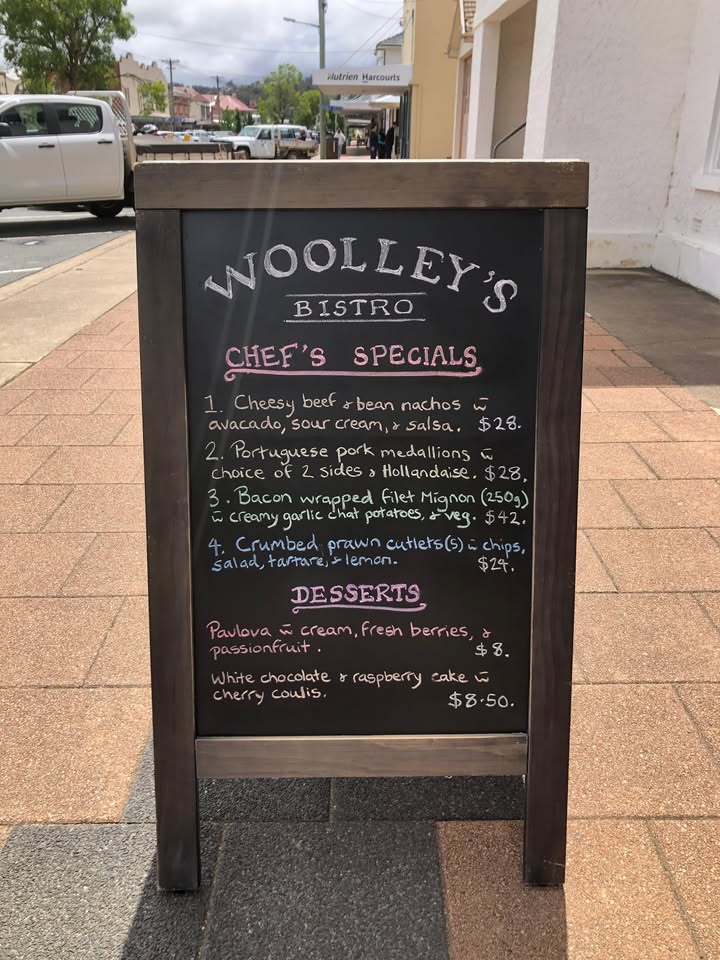 Nutrien Harcourts
WOOLLEY'S
BISTRO
CHEF'S SPECIALS
1. Cheesy beef & bean nachos w̄
avacado, sour cream, & salsa. $28.
2. Portuguese pork medallions w̄
choice of 2 sides & Hollandaise. $28.
3. Bacon wrapped filet Mignon (250g)
w̄ creamy garlic chat potatoes, & veg. $42.
4. Crumbed prawn cutlets(5) w̄ chips,
salad, tartare, & lemon. $24.
DESSERTS
Pavlova w̄ cream, fresh berries, &
passionfruit. $8.
White chocolate & raspberry cake w̄
cherry coulis. $8.50.